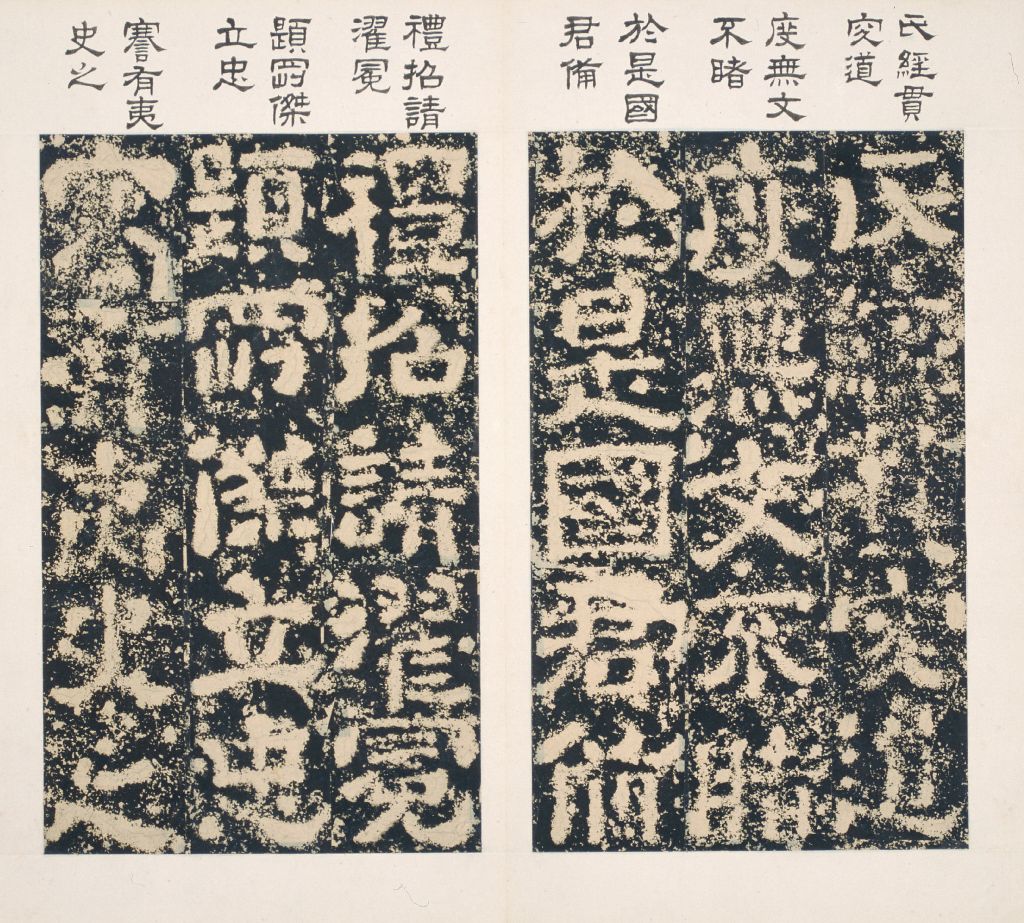 氏經貫
究道
度無文
不睹
於是國
君備
禮招請
濯冕
題傑
立忠
謇有夷
史之
氏經貫究道
度無文不睹
於是國君備
禮招請濯冕
題傑立忠
謇有夷史之